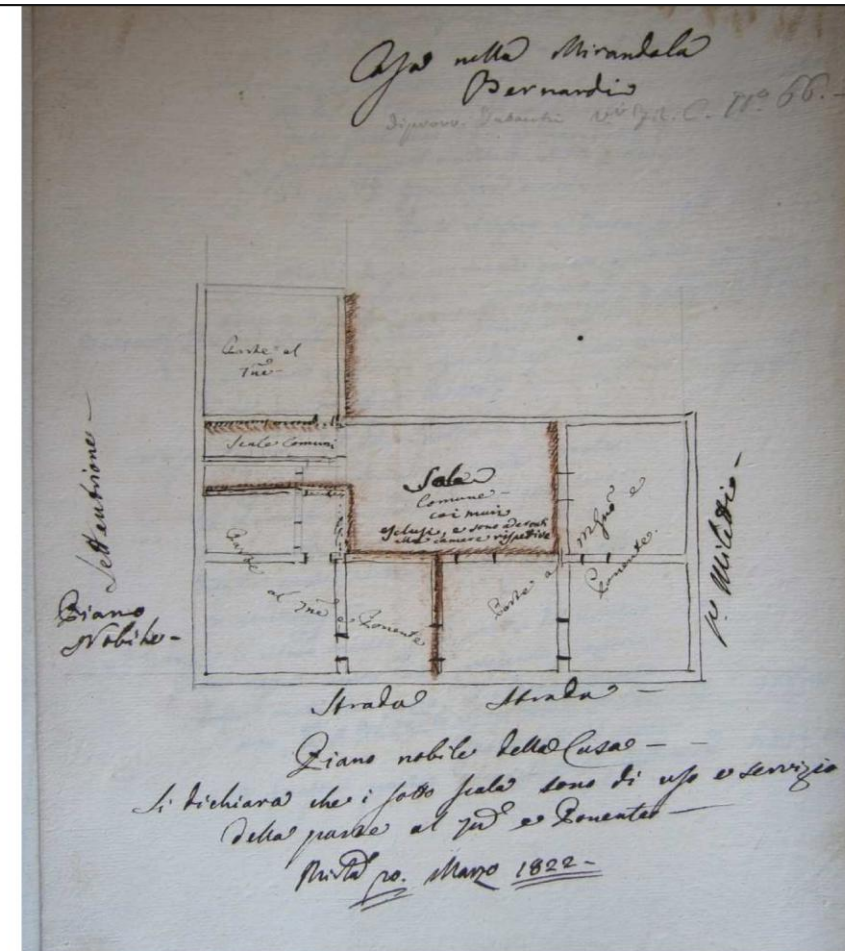 Casa nella Mirandola
Bernardi
No 66.
Parte al
Scale Comuni
Sala
Comune
coi muri
esclusi, e sono aderenti
alle camere rispettive
Parte al
e Ponente
Parte a
e
Ponente.
Settentrione
Piano
Nobile
Strada Strada
Piano nobile della Casa
Si dichiara che i sotto scala sono di uso e servizio
della parte al e Ponente
Marzo 1822